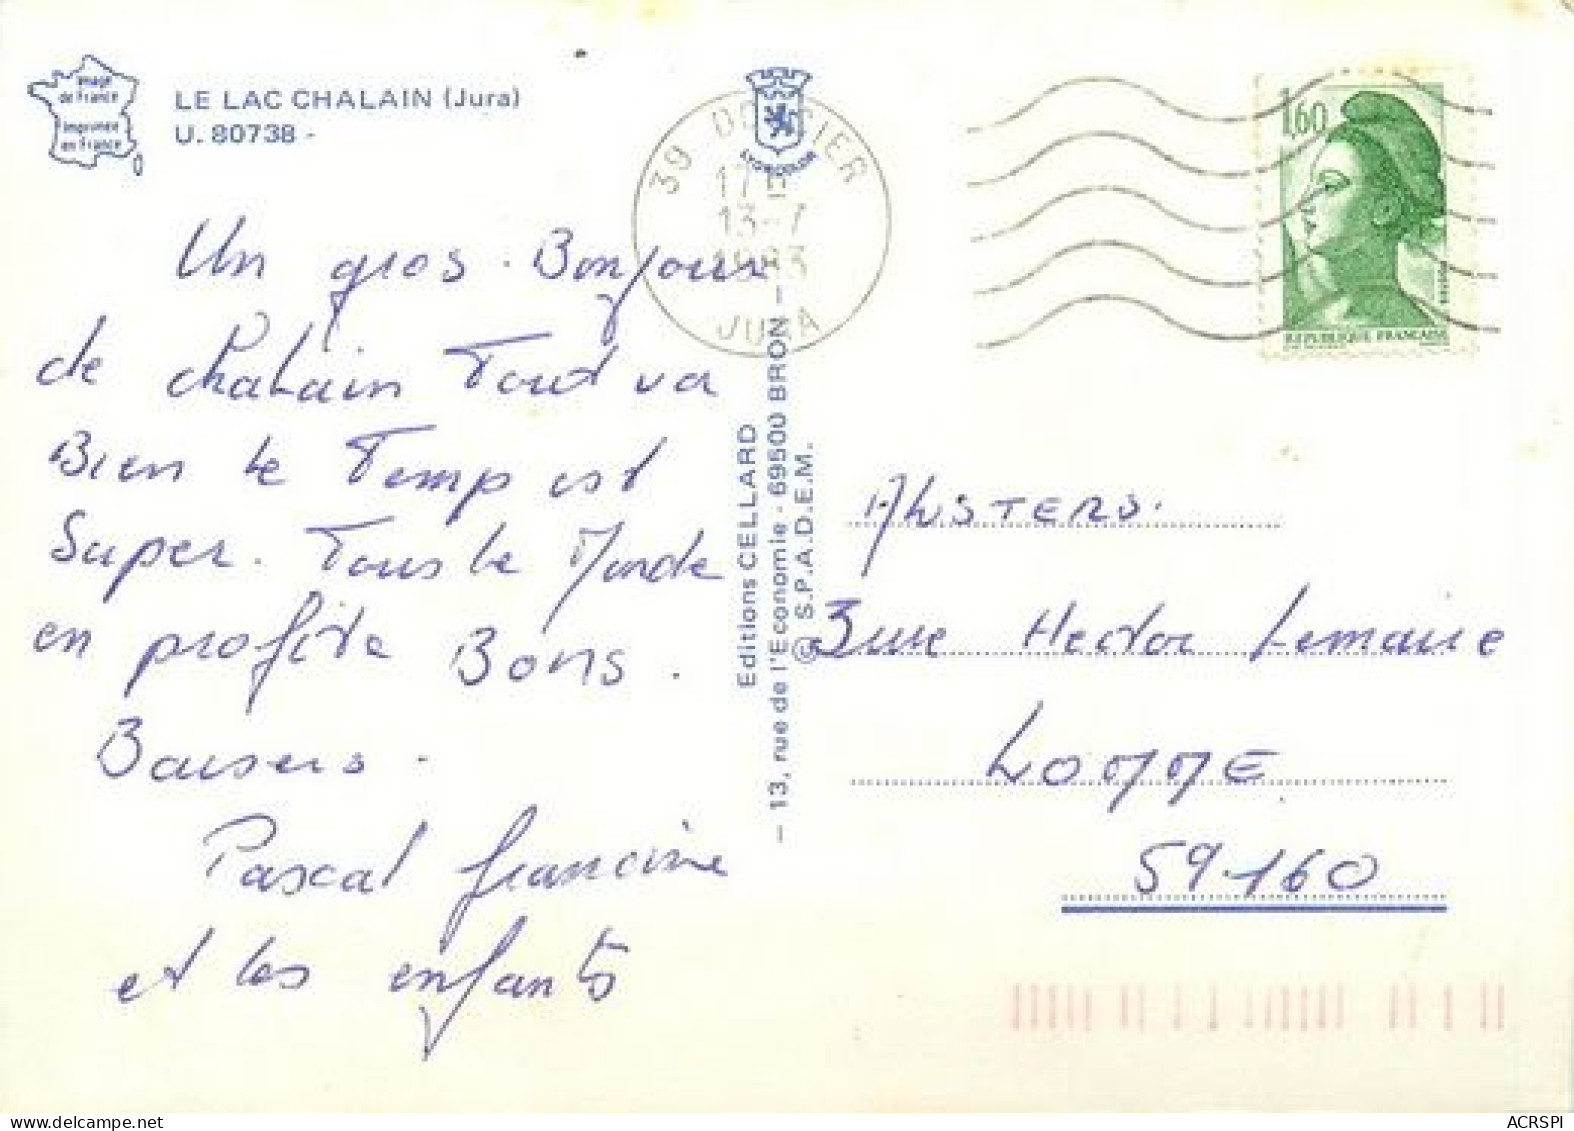 Image
de France
imprimée
en France
LE LAC CHALAIN (Jura)
U. 80738 -
Un gros. Bonjour
de chalain Tout va
Bien le Temp est
Super. Tous le Monde
en profite Bons.
Baisers.
Pascal francine
et les enfants
39 DOUCIER
17H
13-7
1983
JURA
Editions CELLARD
— 13, rue de l'Economie - 69500 BRON —
© S.P.A.D.E.M.
1,60
REPUBLIQUE FRANÇAISE
3 rue Hector Lemaire
LOMME
59160
ACRSPI